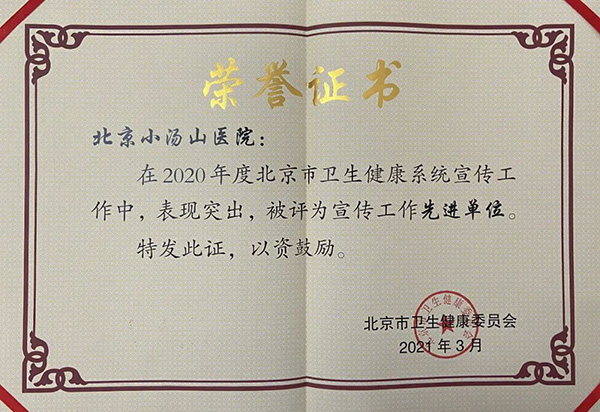 荣誉证书
北京小汤山医院：
在2020年度北京市卫生健康系统宣传工
作中，表现突出，被评为宣传工作先进单位。
特发此证，以资鼓励。
北京市卫生健康委员会
2021年3月
北京市卫生健康委员会